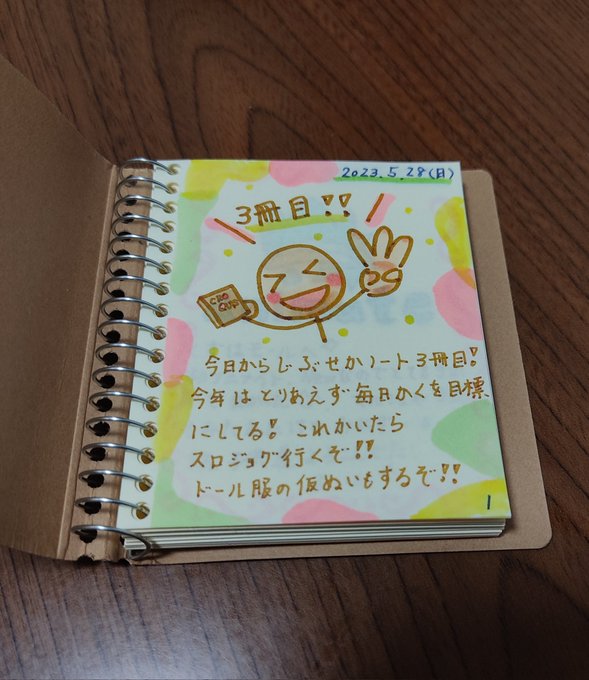 2023.5.28(日)
3冊目!!
CRO
CUP
今日からじぶせかノート3冊目!
今年はとりあえず毎日かくを目標
にしてる! これかいたら
スロジョグ行くぞ!!
ドール服の仮ぬいもするぞ!!
1